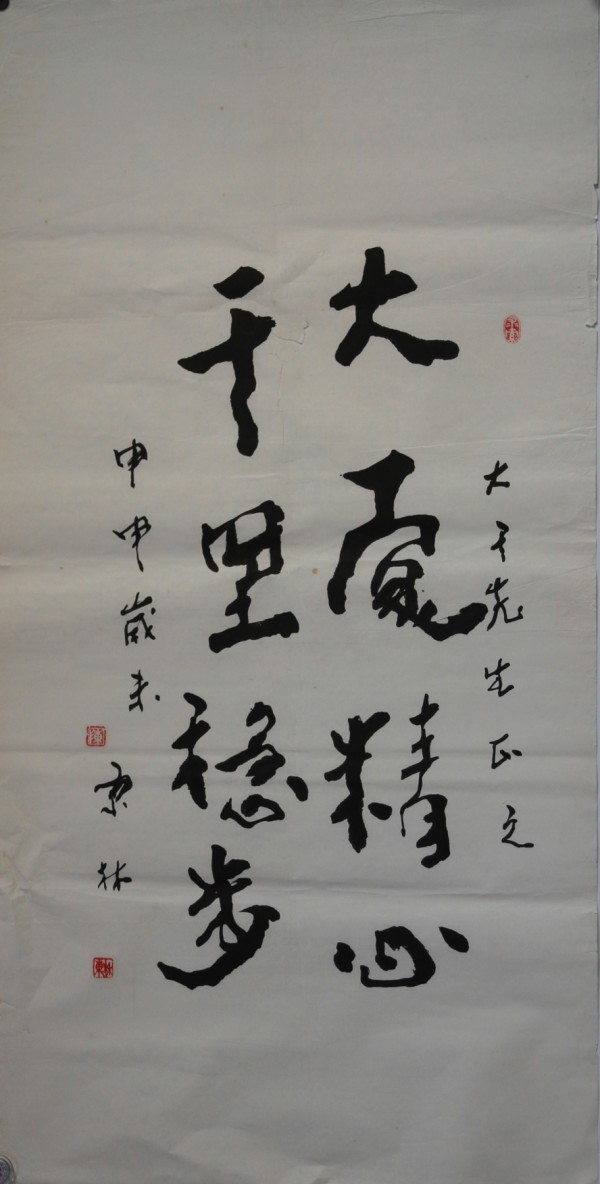 大千先生正之
大處精心
千里穩步
甲申歲末
林